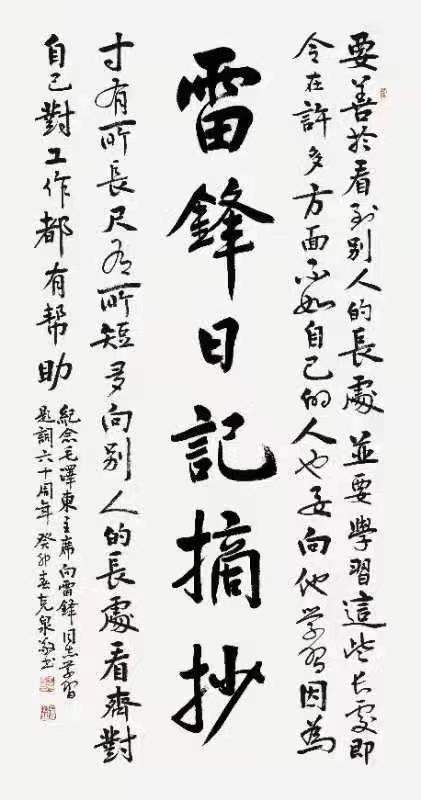 要善於看到別人的長處並要學習這些长處即
令在許多方面不如自己的人也要向他学習因為
雷鋒日記摘抄
寸有所長尺有所短多向別人的長處看齊對
自己對工作都有帮助
紀念毛澤東主席向雷鋒同志学習
題詞六十周年 癸卯春克泉敬书